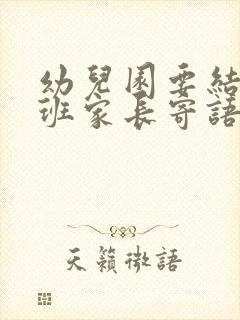 幼兒園要結
班家長寄語
天籟微語